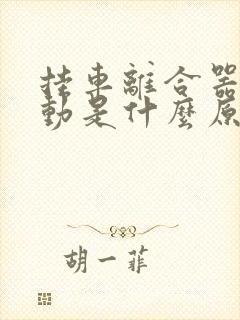 挂車離合器
動是什麼原
胡一菲